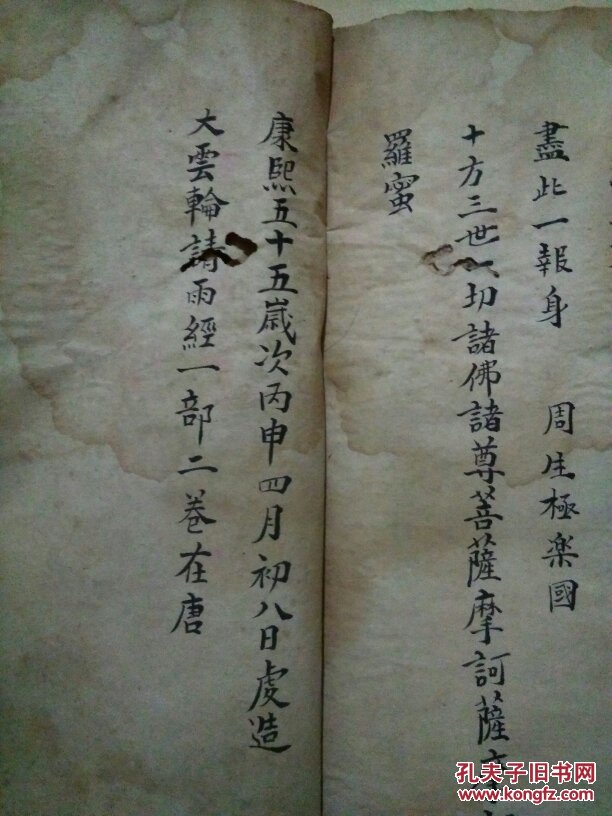 盡此一報身 周生極楽國
十方三世一切諸佛諸尊菩薩摩訶薩
羅蜜
康熙五十五歲次丙申四月初八日虔造
大雲輪請雨經一部二卷在唐
孔夫子旧书网
www.kongfz.com